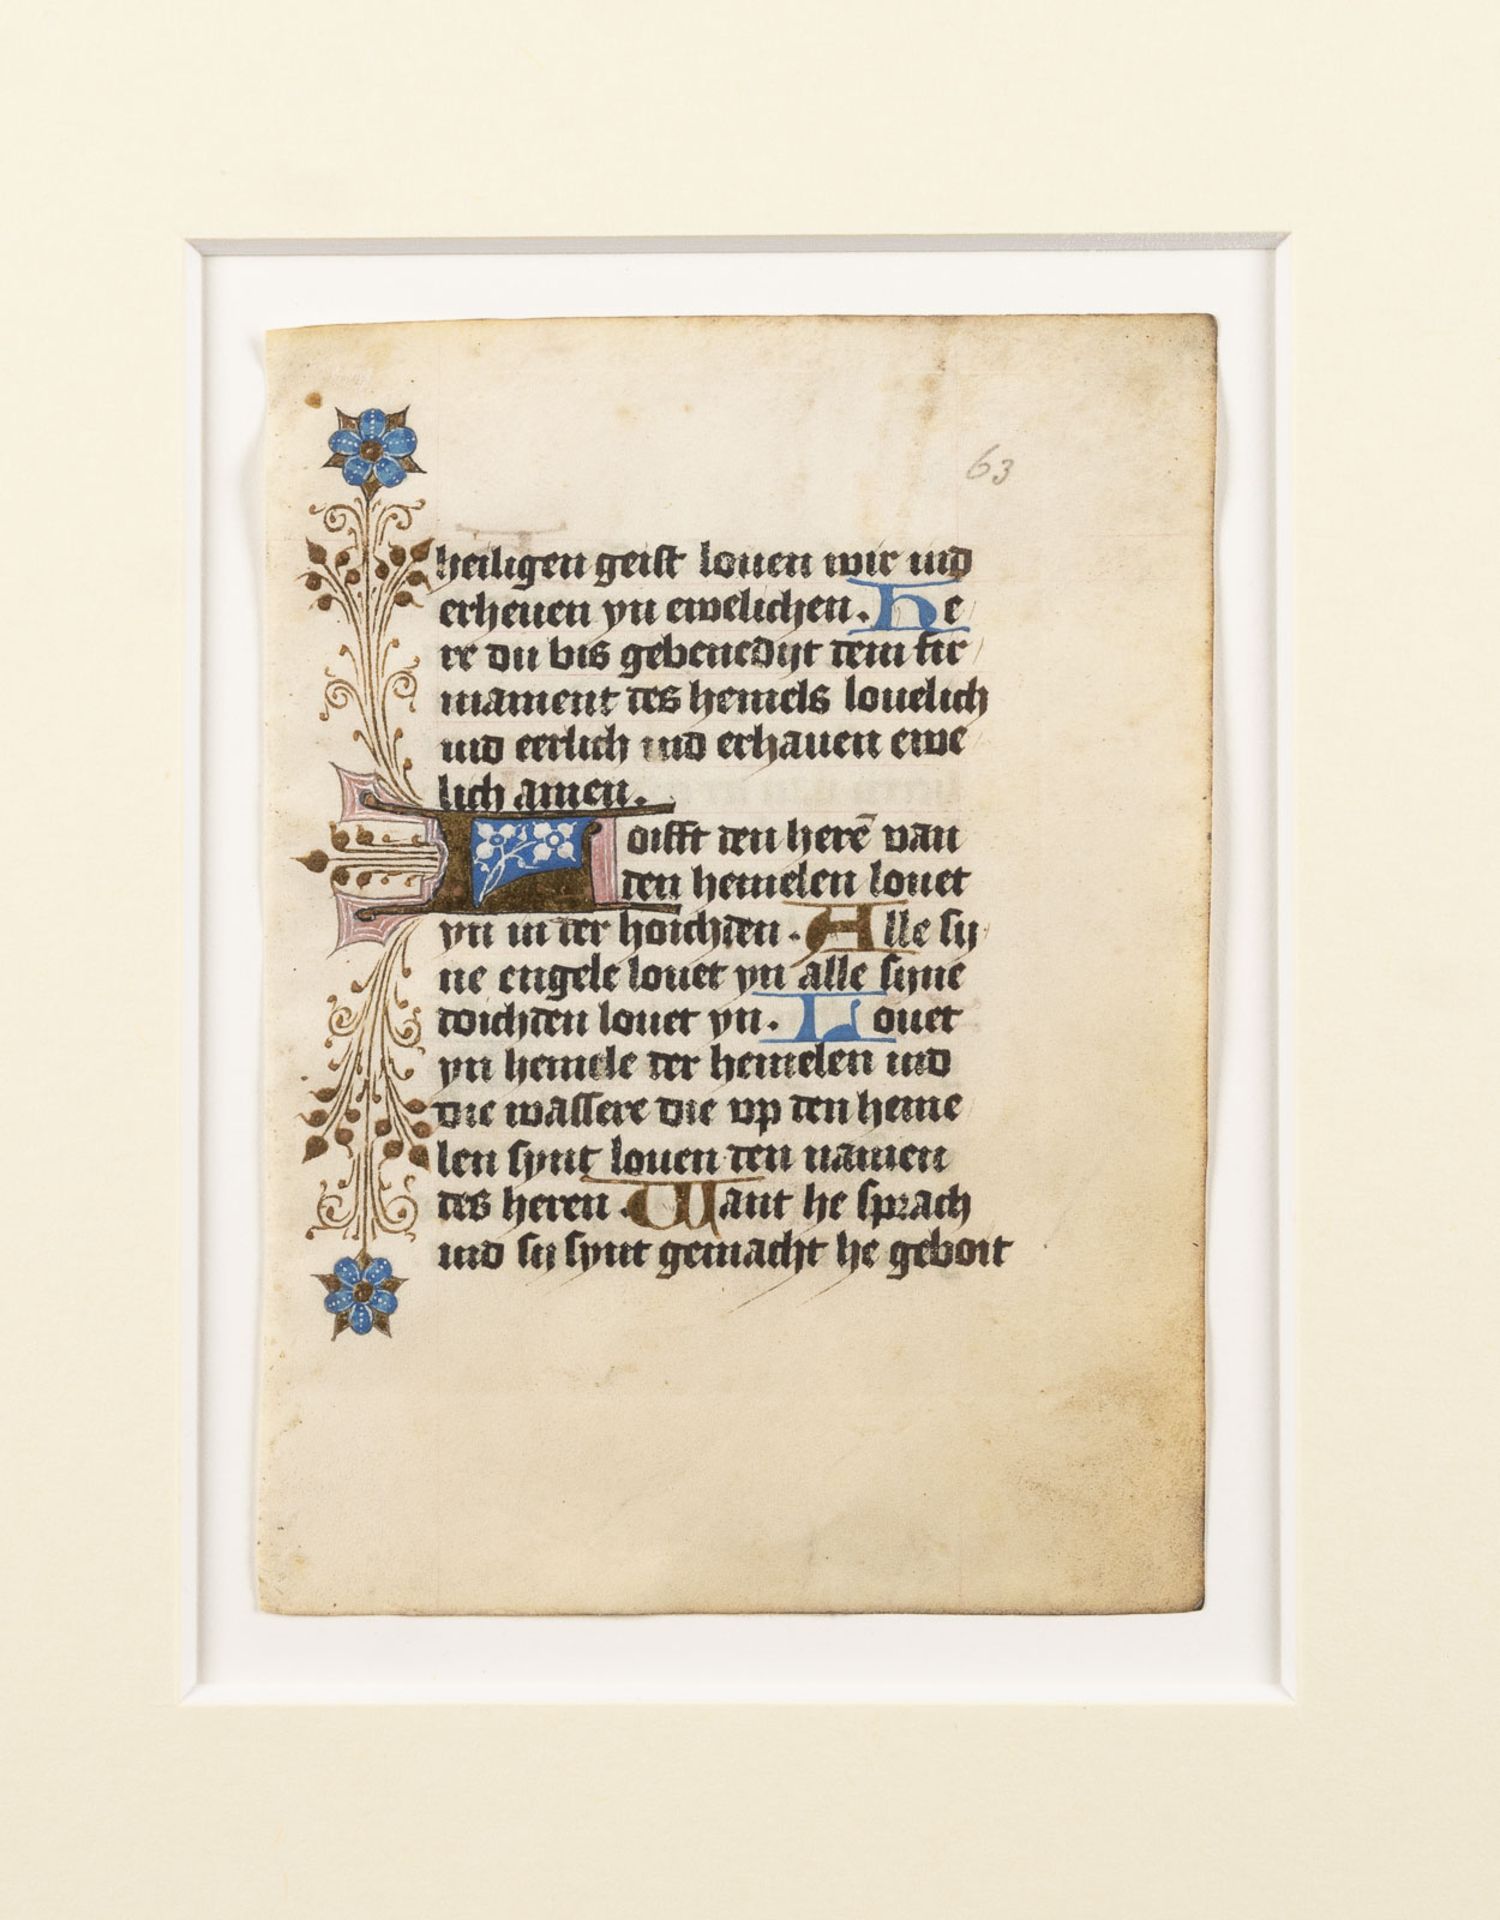 63
heiligen geist louen wir und
erheuen yn ewelichen. He
re du bis gebenedijt dem fir
mament des hemels louelich
und eerlich und erhauen ewe
lich amen.
Loifft den herē van
den hemelen louet
yn in der hoichden. Alle sy
ne engele louet yn alle syne
doichden louet yn. Louet
yn hemele der hemelen und
die wassere die vp den heme
len synt louen den namen
des heren. Want he sprach
und sy synt gemacht he geboit